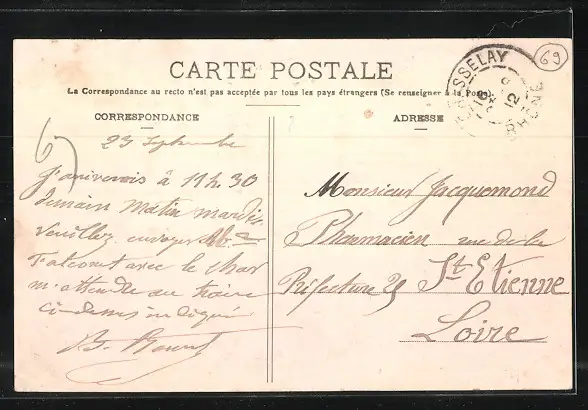 CARTE POSTALE
La Correspondance au recto n'est pas acceptée par tous les pays étrangers (Se renseigner à la Poste)
CORRESPONDANCE
23 Septembre
J'arriverais à 11h.30
demain matin mardi
Veuillez envoyer
avec le char
m'attendre au
ci-dessus indiqué
ADRESSE
Monsieur Jacquemond
Pharmacien rue de la
Préfecture 25 St Etienne
Loire
CHASSELAY
RHONE
69